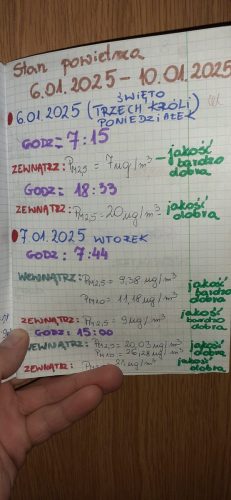 Stan powietrza
6.01.2025 - 10.01.2025
ŚWIĘTO
6.01.2025 (TRZECH KRÓLI)
PONIEDZIAŁEK
GODZ= 7:15
ZEWNĄTRZ: PM2,5 = 7ug/m³ - jakość bardzo dobra
GODZ= 18:33
ZEWNĄTRZ: PM2,5 = 20ug/m³ - jakość dobra
7.01.2025 WTOREK
GODZ: 7:44
WEWNĄTRZ: PM2,5 = 9,38 ug/m³
PM10 = 11,18 ug/m³
jakość bardzo dobra
ZEWNĄTRZ: PM2,5 = 9ug/m³ jakość bardzo dobra
GODZ: 15:00
WEWNĄTRZ: PM2,5 = 20,03 ug/m³
PM10 = 26,28 ug/m³
jakość dobra
ZEWNĄTRZ: ug/m³ jakość dobra